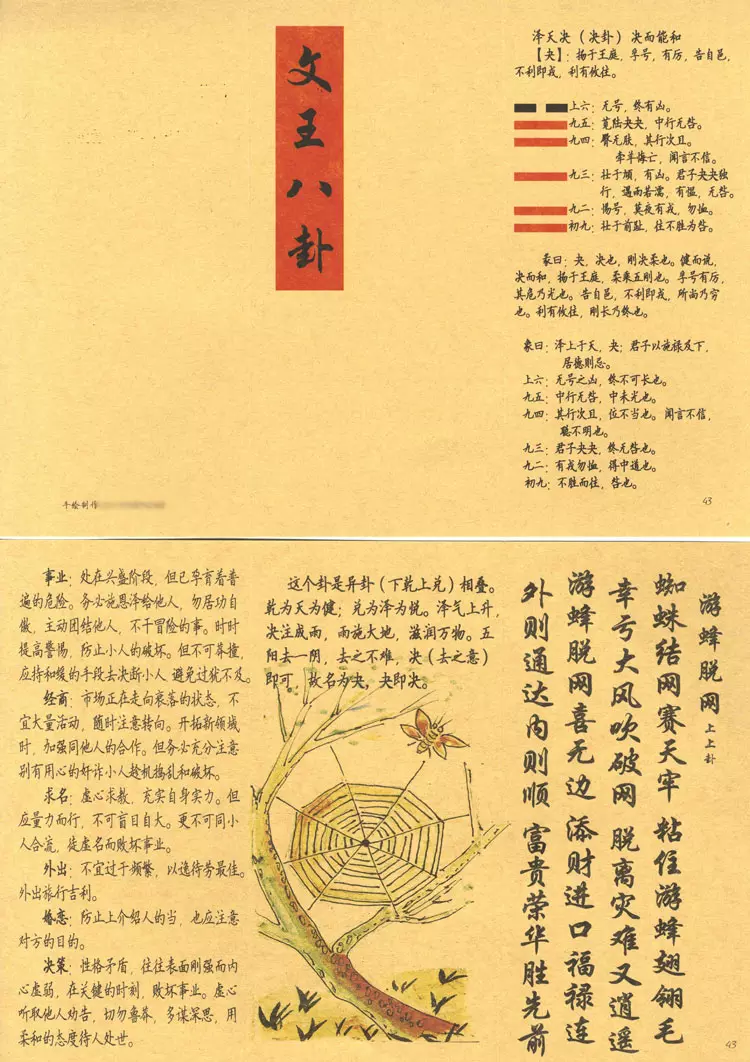 文王八卦
泽天决（决卦）决而能和
【夬】：扬于王庭，孚号，有厉，告自邑，
不利即戎，利有攸往。
上六：无号，终有凶。
九五：苋陆夬夬，中行无咎。
九四：臀无肤，其行次且。
牵羊悔亡，闻言不信。
九三：壮于頄，有凶。君子夬夬独
行，遇雨若濡，有愠，无咎。
九二：惕号，莫夜有戎，勿恤。
初九：壮于前趾，往不胜为咎。
彖曰：夬，决也，刚决柔也。健而说，
决而和，扬于王庭，柔乘五刚也。孚号有厉，
其危乃光也。告自邑，不利即戎，所尚乃穷
也。利有攸往，刚长乃终也。
象曰：泽上于天，夬；君子以施禄及下，
居德则忌。
上六：无号之凶，终不可长也。
九五：中行无咎，中未光也。
九四：其行次且，位不当也。闻言不信，
聪不明也。
九三：君子夬夬，终无咎也。
九二：有戎勿恤，得中道也。
初九：不胜而往，咎也。
手绘制作
43
游蜂脱网 上上卦
蜘蛛结网赛天牢 粘住游蜂翅翎毛
幸亏大风吹破网 脱离灾难又逍遥
游蜂脱网喜无边 添财进口福禄连
外则通达内则顺 富贵荣华胜先前
这个卦是异卦（下乾上兑）相叠。
乾为天为健；兑为泽为悦。泽气上升，
决注成雨，雨施大地，滋润万物。五
阳去一阴，去之不难，决（去之意）
即可，故名为夬，夬即决。
事业：处在兴盛阶段，但已孕育着普
遍的危险。务必施恩泽给他人，勿居功自
傲，主动团结他人，不干冒险的事。时时
提高警惕，防止小人的破坏。但不可莽撞，
应持和缓的手段去决断小人 避免过犹不及。
经商：市场正在走向衰落的状态，不
宜大量活动，随时注意转向。开拓新领域
时，加强同他人的合作。但务必充分注意
别有用心的奸诈小人趁机捣乱和破坏。
求名：虚心求教，充实自身实力。但
应量力而行，不可盲目自大。更不可同小
人合流，徒虚名而败坏事业。
外出：不宜过于频繁，以逸待劳最佳。
外出旅行吉利。
婚恋：防止上介绍人的当，也应注意
对方的目的。
决策：性格矛盾，往往表面刚强而内
心虚弱，在关键的时刻，败坏事业。虚心
听取他人劝告，切勿鲁莽，多谋深思，用
柔和的态度待人处世。
43